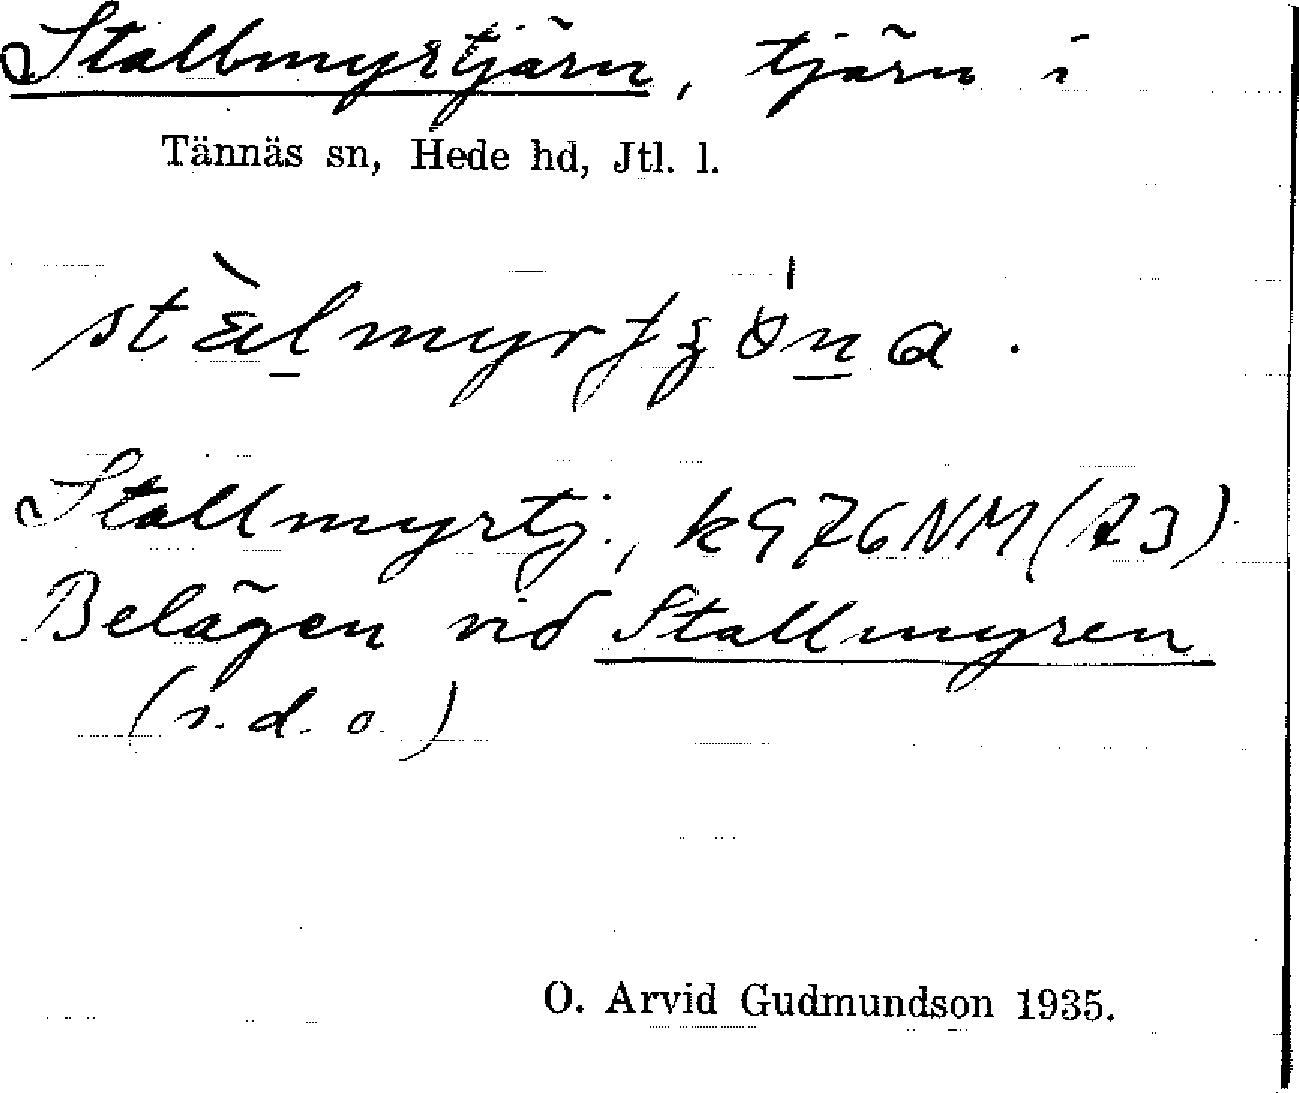 Stallmyrtjärn, tjärn i
Tännäs sn, Hede hd, Jtl. l.
Stallmyrtj., k976NM(A3)
Belägen vid Stallmyren
(s.d.o.)
O. Arvid Gudmundson 1935.